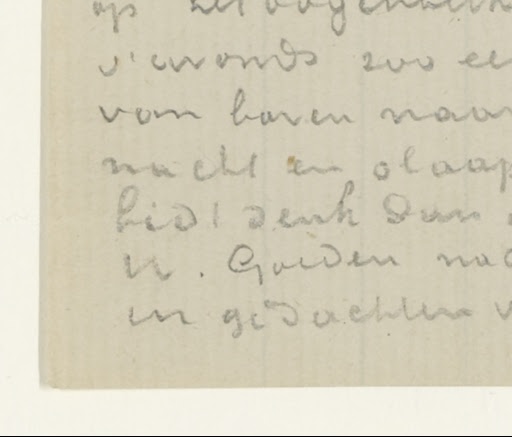 op het oogenblik
s'avonds zoo ee
van boven naar
nacht en slaap
bid! denk dan
U. Goeden nac
in gedachten v